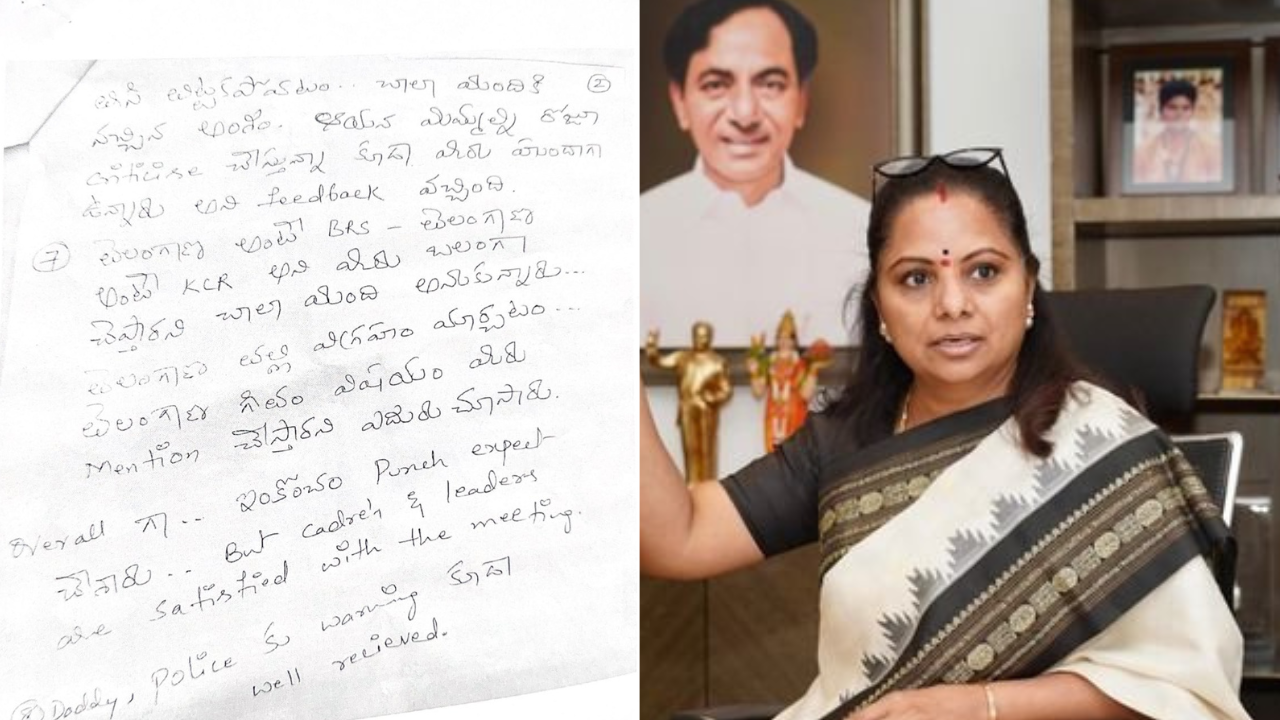 అని తిట్టకపోవటం... చాలా మందికి ②
నచ్చిన అంశం. ఆయన మిమ్మల్ని రోజూ
criticise చేస్తున్నా కూడా మీరు హుందాగా
ఉన్నారు అని feedback వచ్చింది.
⑦ తెలంగాణ అంటే BRS - తెలంగాణ
అంటే KCR అని మీరు బలంగా
చెప్తారని చాలా మంది అనుకున్నారు...
తెలంగాణ తల్లి విగ్రహం మార్చటం...
తెలంగాణ గీతం విషయం మీరు
Mention చేస్తారని ఎదురు చూసారు.
Overall గా... ఇంకొంచం Punch expect
చేశారు... But cadre & leaders
are satisfied with the meeting.
⑧ Daddy, police కు warning కూడా
well recieved.